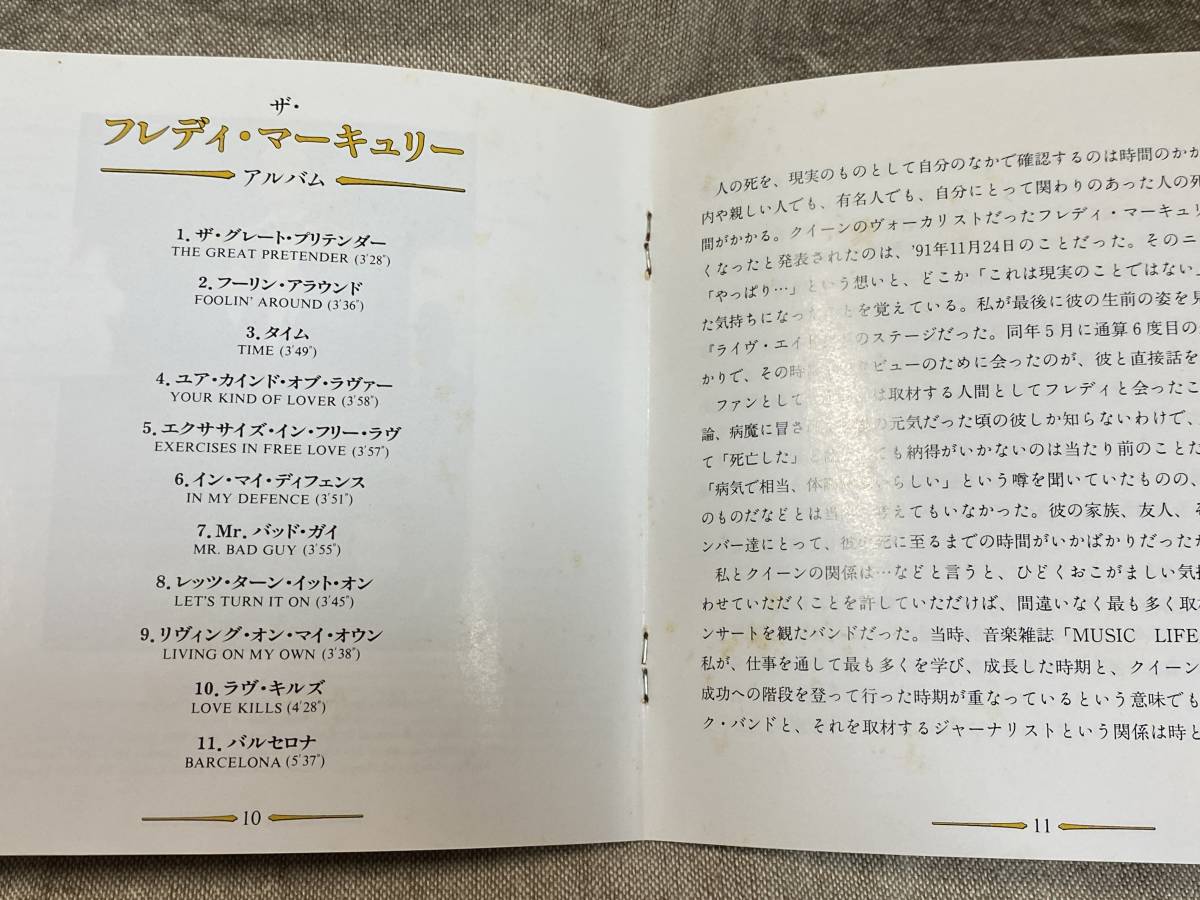 ザ・
フレディ・マーキュリー
アルバム
1. ザ・グレート・プリテンダー
THE GREAT PRETENDER (3'28")
2. フーリン・アラウンド
FOOLIN' AROUND (3'36")
3. タイム
TIME (3'49")
4. ユア・カインド・オブ・ラヴァー
YOUR KIND OF LOVER (3'58")
5. エクササイズ・イン・フリー・ラヴ
EXERCISES IN FREE LOVE (3'57")
6. イン・マイ・ディフェンス
IN MY DEFENCE (3'51")
7. Mr. バッド・ガイ
MR. BAD GUY (3'55")
8. レッツ・ターン・イット・オン
LET'S TURN IT ON (3'45")
9. リヴィング・オン・マイ・オウン
LIVING ON MY OWN (3'38")
10. ラヴ・キルズ
LOVE KILLS (4'28")
11. バルセロナ
BARCELONA (5'37")
10
人の死を、現実のものとして自分のなかで確認するのは時間のかか
内や親しい人でも、有名人でも、自分にとって関わりのあった人の死
間がかかる。クイーンのヴォーカリストだったフレディ・マーキュリ
くなったと発表されたのは、'91年11月24日のことだった。そのニ
「やっぱり…」という想いと、どこか「これは現実のことではない」
た気持ちになったことを覚えている。私が最後に彼の生前の姿を見
『ライヴ・エイド のステージだった。同年5月に通算6度目の
かりで、その時 ビューのために会ったのが、彼と直接話を
ファンとして は取材する人間としてフレディと会ったこ
論、病魔に冒さ の元気だった頃の彼しか知らないわけで、
て「死亡した」と ても納得がいかないのは当たり前のことだ
「病気で相当、体 らしい」という噂を聞いていたものの、
のものだなどとは当 考えてもいなかった。彼の家族、友人、そ
ンバー達にとって、彼の死に至るまでの時間がいかばかりだったか
私とクイーンの関係は…などと言うと、ひどくおこがましい気持
わせていただくことを許していただけば、間違いなく最も多く取材
ンサートを観たバンドだった。当時、音楽雑誌「MUSIC LIFE
私が、仕事を通して最も多くを学び、成長した時期と、クイーン
成功への階段を登って行った時期が重なっているという意味でも
ク・バンドと、それを取材するジャーナリストという関係は時と
11